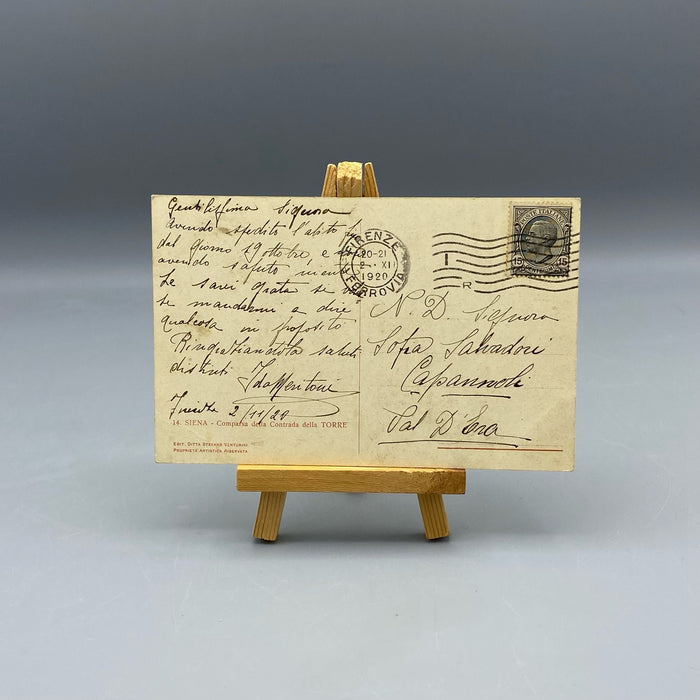 Gentilissima Signora
avendo spedito l'abito fi
dal giorno 19 ottobre e
avendo saputo
Le sarei grata se
se mandarmi a dire
qualcosa in proposito
Ringraziandola saluti
distinti Ida
Firenze 2/11/20
14. SIENA - Comparsa della Contrada della TORRE
EDIT. DITTA STEFANO VENTURINI
PROPRIETÀ ARTISTICA RISERVATA
FIRENZE
20-21
2-XI
1920
FERROVIA
I
R
POSTE ITALIANE
15 15
N. D. Signora
Sofia Salvadori
Capannoli
Val D'Era